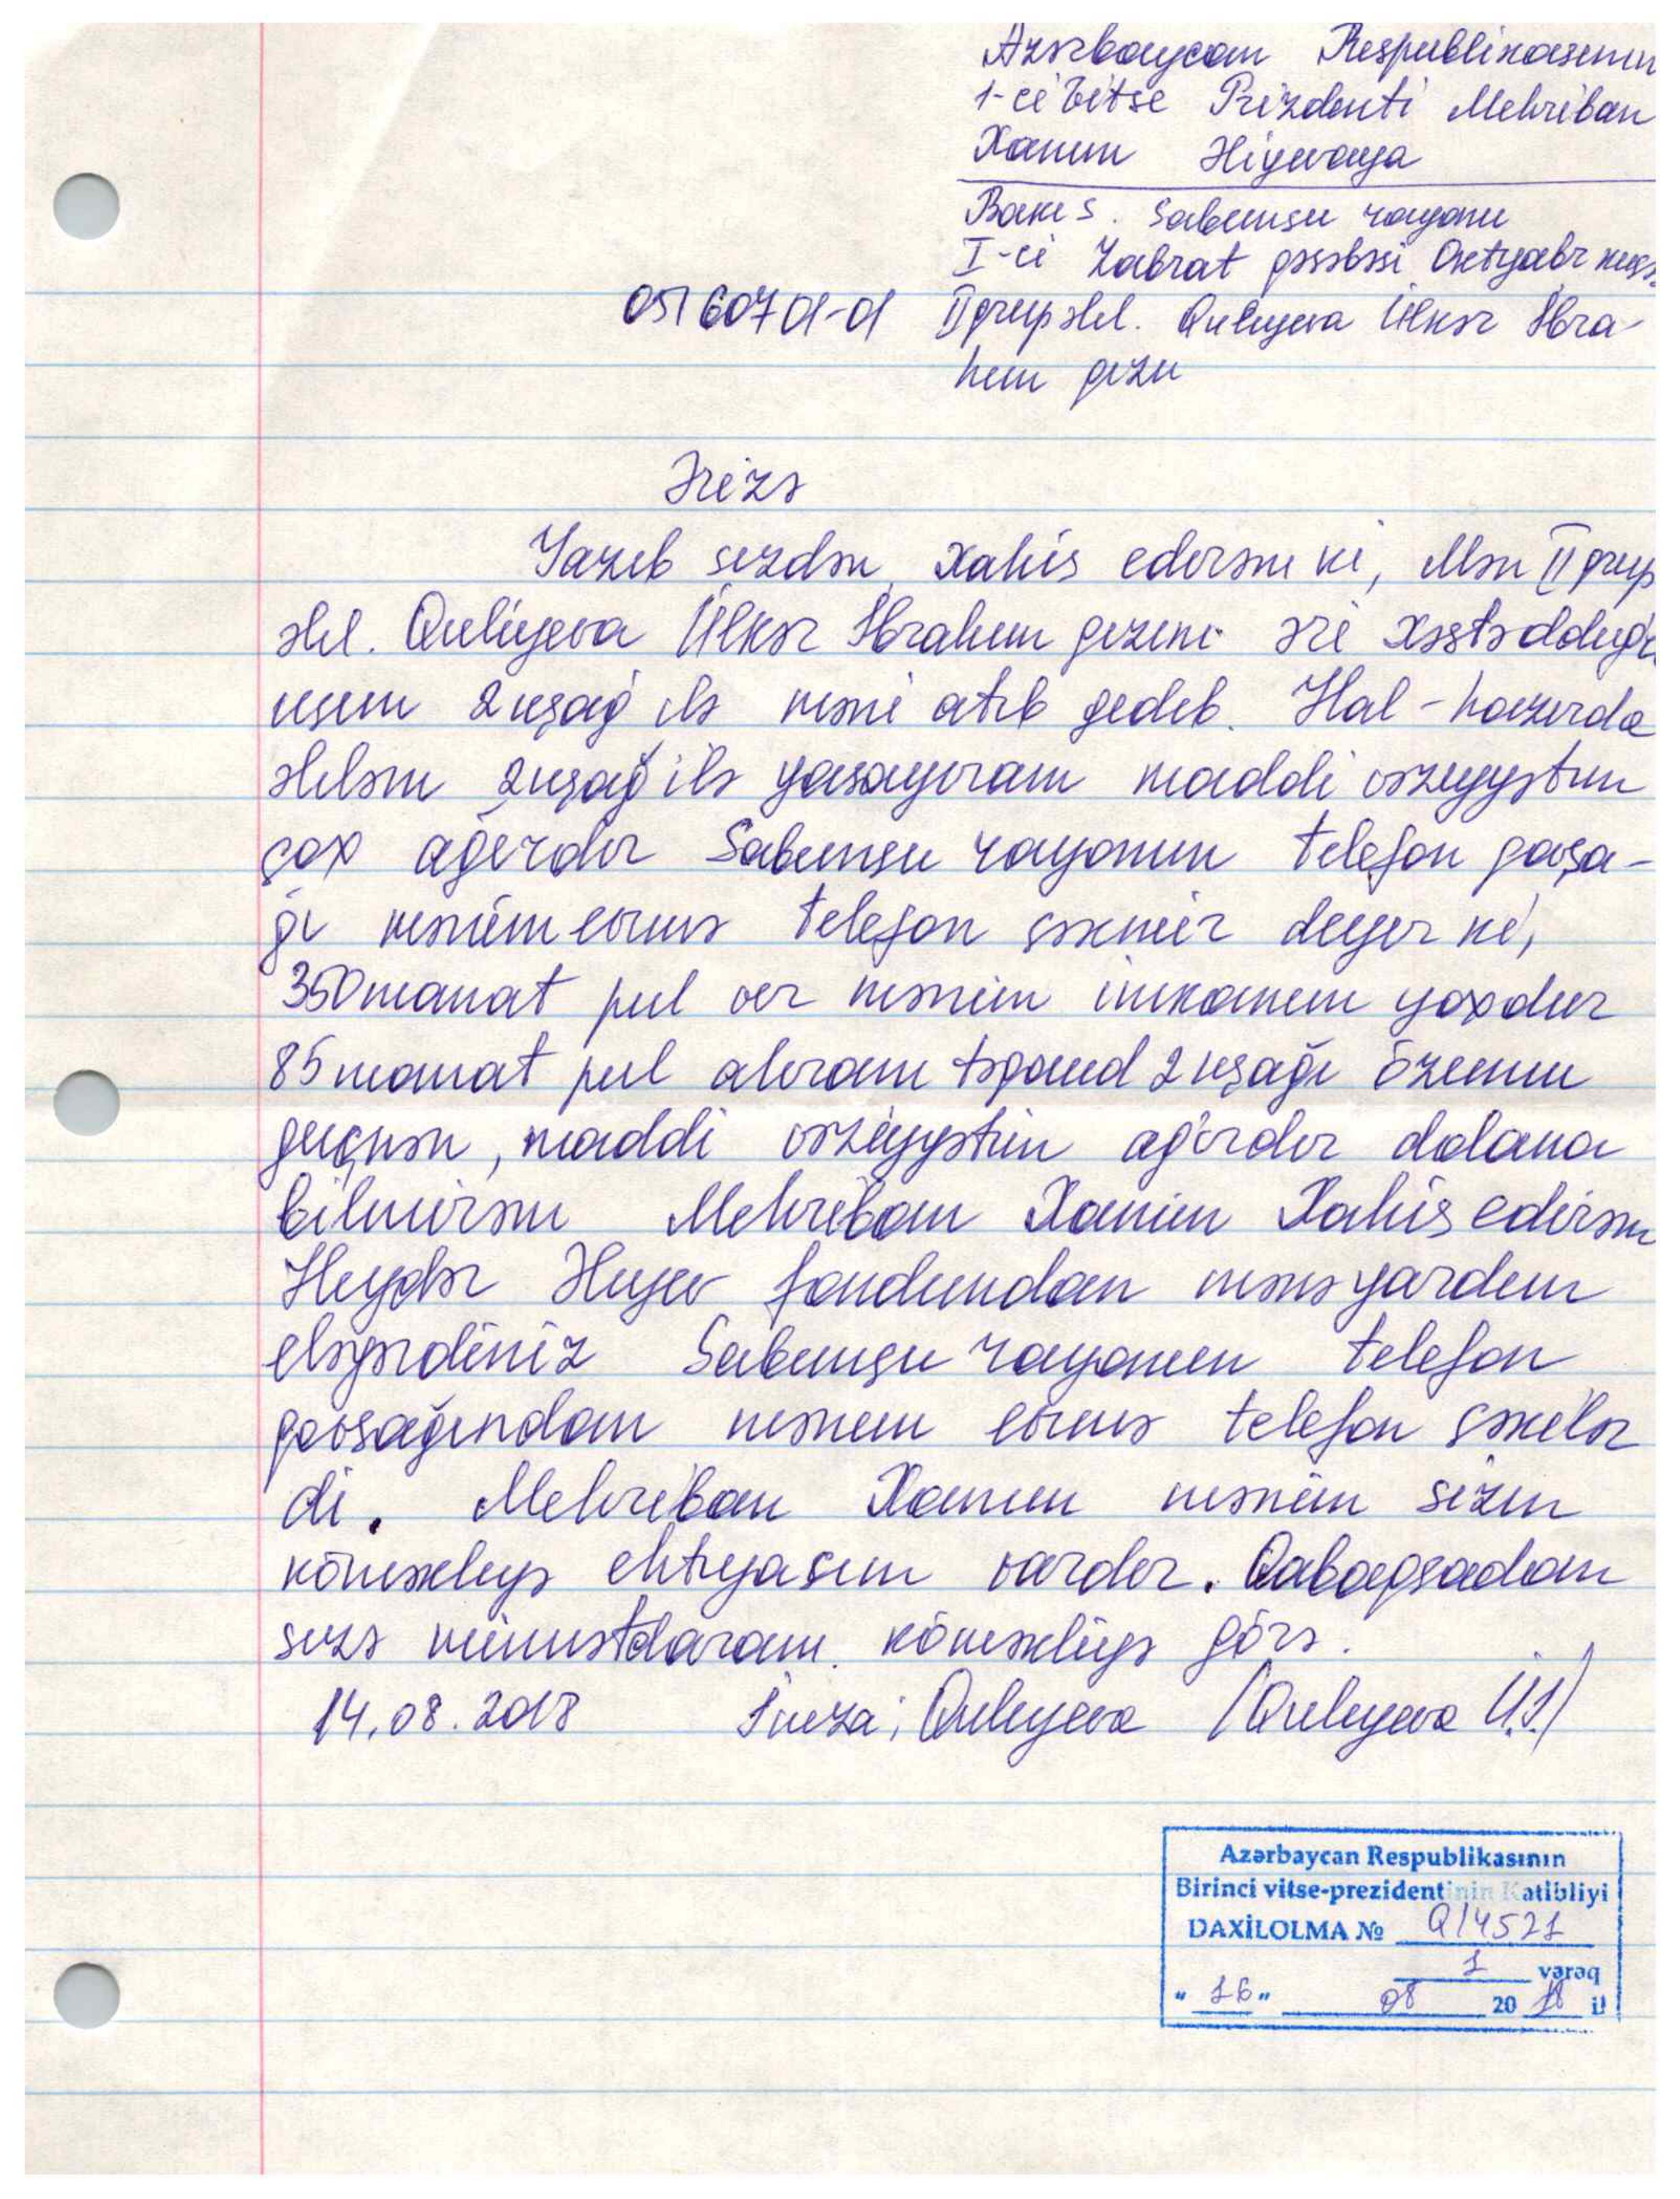 Azərbaycan Respublikasının
1-ci Vitse Prizdenti Mehriban
Xanım Əliyevaya
Bakı ş. Sabunsu rayonu
I-ci Zabrat qəsəbəsi Oktyabr küç.
051 607 01-01 II qrup əlil. Quliyeva Ülkər İbra-
him qızı
Ərizə
Yazıb sizdən xahiş edirəm ki, Mən II qrup
əlil. Quliyeva Ülkər İbrahim qızını əri xəstə olduğu
uçun 2 uşağ ilə məni atıb gedib. Hal-hazırda
əliləm 2 uşağ ilə yaşayıram maddi vəziyyətim
çox ağırdır Sabunçu rayonun telefon qovşa-
ğı mənim evimə telefon çəkmir deyir ki,
350 manat pul ver mənim imkanım yoxdur
85 manat pul alıram təqaud 2 uşağı özümü
guçnən, maddi vəziyyətim ağırdır dolana
bilmirəm Mehriban Xanım Xahiş edirəm
Heydər Əliyev fondundan mənə yardım
eləyərdiniz Sabunçu rayonun telefon
qovsağından mənim evimə telefon çəkilər
di. Mehriban Xanım mənim sizin
köməkliyə ehtiyaçım vardır. Qabaqçadan
sizə minnətdaram. köməkliyə görə.
14.08.2018 İmza; Quliyeva (Quliyeva Ü.İ)
Azərbaycan Respublikasının
Birinci vitse-prezidentinin Katibliyi
DAXİLOLMA № Q14521
1 vərəq
" 16 " 08 20 18 il